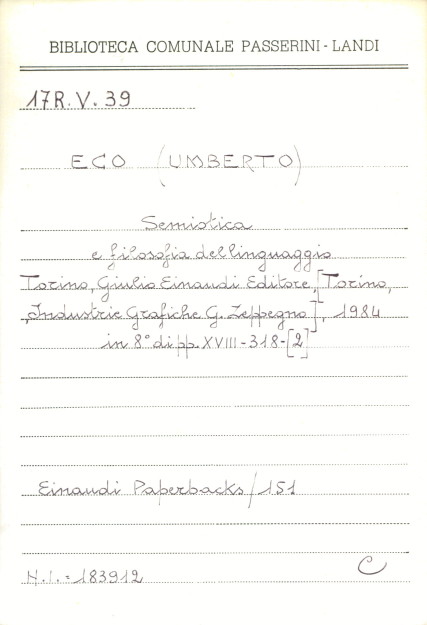 BIBLIOTECA COMUNALE PASSERINI - LANDI
17R.V.39
ECO (UMBERTO)
Semiotica
e filosofia del linguaggio
Torino, Giulio Einaudi Editore, [Torino,
Industrie Grafiche G. Zeppegno], 1984
in 8° di pp. XVIII-318-[2]
Einaudi Paperbacks/151
N.I.=183912
C